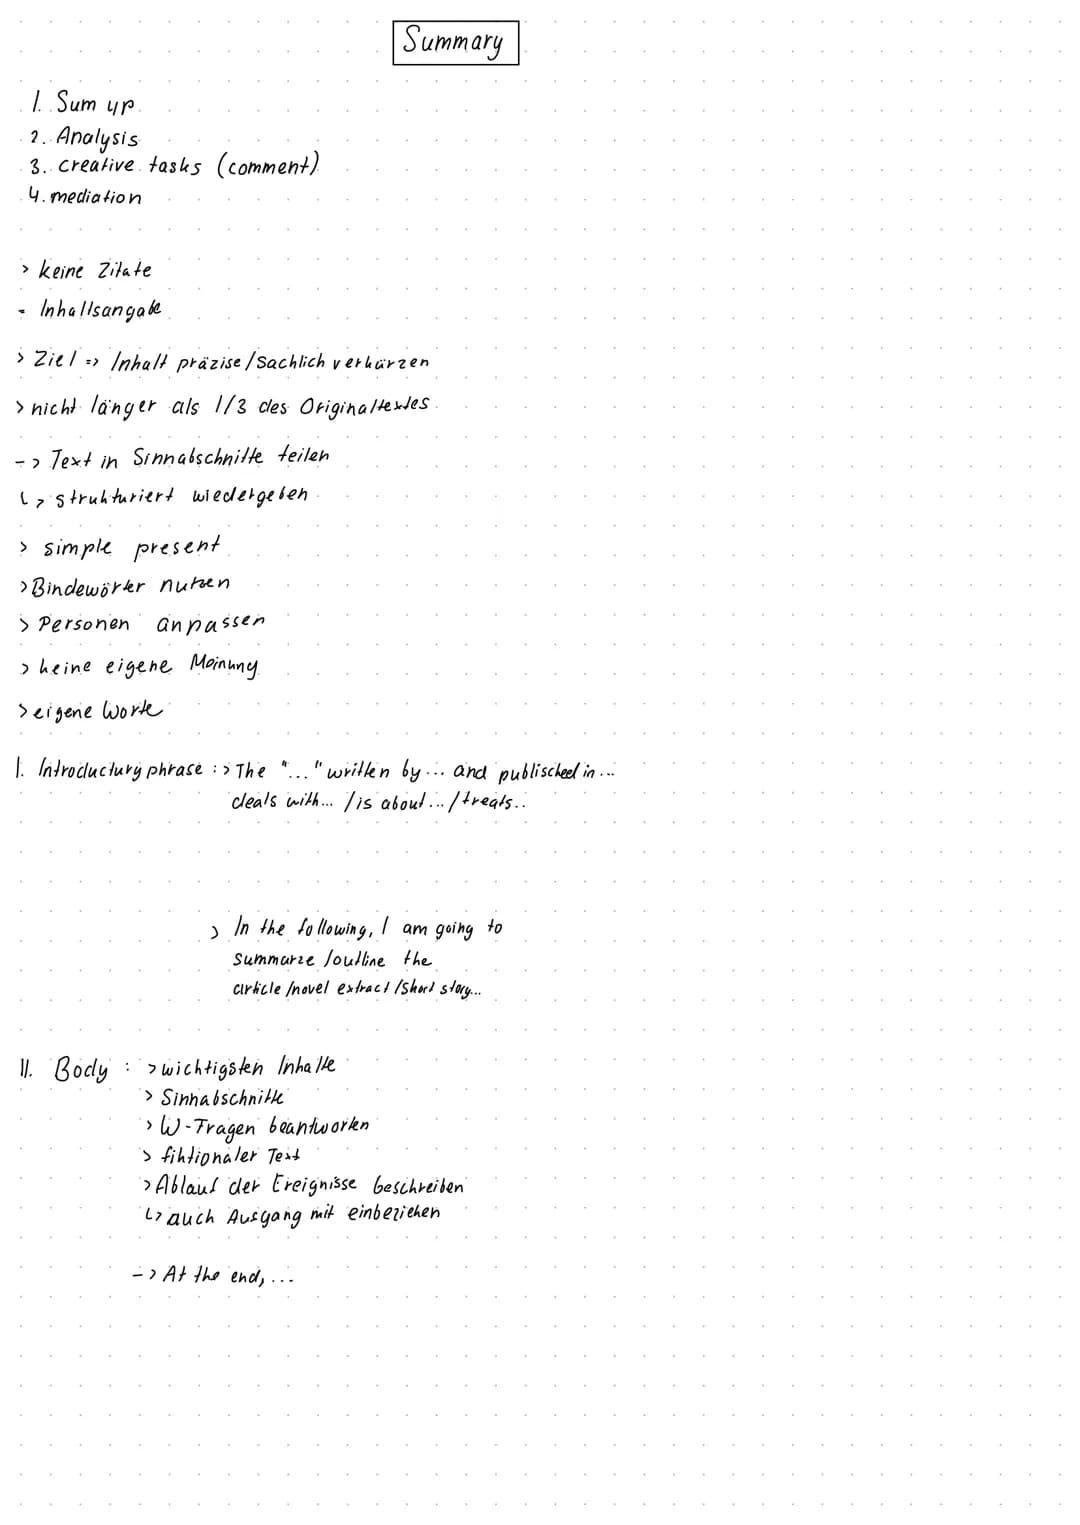 Summary
1. Sum up
2. Analysis
3. creative tasks (comment)
4. mediation
> keine Zitate
- Inhaltsangabe
> Ziel => Inhalt präzise/sachlich verkürzen
> nicht länger als 1/3 des Originaltextes
-> Text in Sinnabschnitte teilen
↳ strukturiert wiedergeben
> simple present
> Bindewörter nutzen
> Personen anpassen
> keine eigene Meinung
> eigene Worte
I. Introductury phrase : > The "..." written by... and publisched in...
deals with... /is about... /treats..
> In the following, I am going to
summarze /outline the
article /novel extract /short story...
II. Body : > wichtigsten Inhalte
> Sinnabschnitte
> W-Fragen beantworten
> fiktionaler Text
> Ablauf der Ereignisse beschreiben
↳ auch Ausgang mit einbeziehen
-> At the end, ...